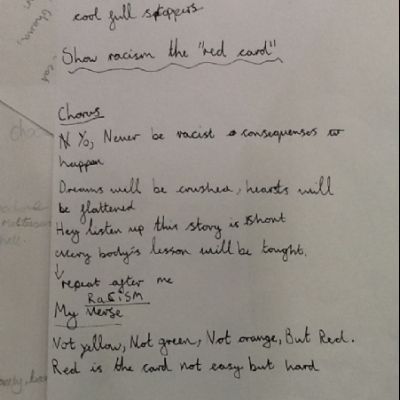 cool full stoppers
Show racism the "red card"
Chorus
Yo, Never be racist consequenses
happen
Dreams will be crushed, hearts will
be flattened
Hey listen up this story is short
every body's lesson will be tought.
repeat after me
RaciSM
My verse
Not yellow, Not green, Not orange, But Red.
Red is the card not easy but hard